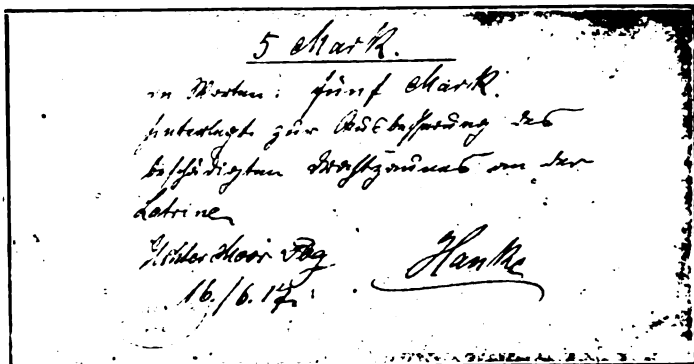 5 Mark.
in Worten: fünf Mark.
hinterlegt zur Ausbesserung des
beschädigten Drahtzaunes an der
Latrine
Moor
16./6. 17.
Hanke